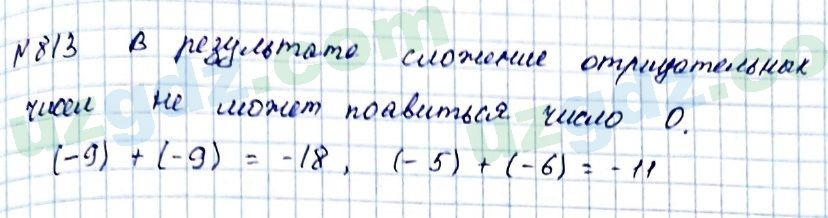 №813 В результате сложение отрицательных
чисел не может появиться число 0.
(-9) + (-9) = -18, (-5) + (-6) = -11
uzgdz.com
uzgdz.com